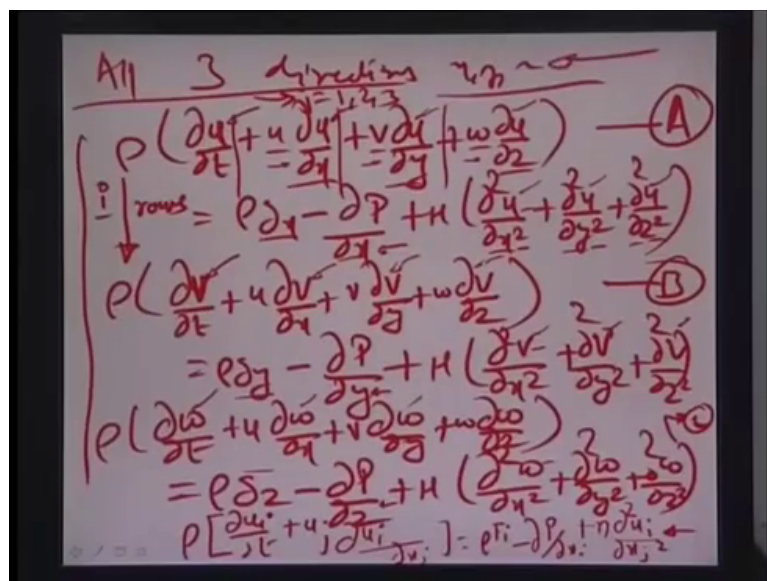 All 3 directions x, y, z ~
→ j = 1, 2, 3
ρ(∂u/∂t + u ∂u/∂x + v ∂u/∂y + w ∂u/∂z) — A
i ↓ rows = ρ g_x − ∂P/∂x + μ(∂²u/∂x² + ∂²u/∂y² + ∂²u/∂z²)
ρ(∂v/∂t + u ∂v/∂x + v ∂v/∂y + w ∂v/∂z) — B
= ρ g_y − ∂P/∂y + μ(∂²v/∂x² + ∂²v/∂y² + ∂²v/∂z²)
ρ(∂w/∂t + u ∂w/∂x + v ∂w/∂y + w ∂w/∂z) → C
= ρ g_z − ∂P/∂z + μ(∂²w/∂x² + ∂²w/∂y² + ∂²w/∂z²)
ρ[∂u_i/∂t + u_j ∂u_i/∂x_j] = ρ F_i − ∂P/∂x_i + η ∂²u_i/∂x_j² ←